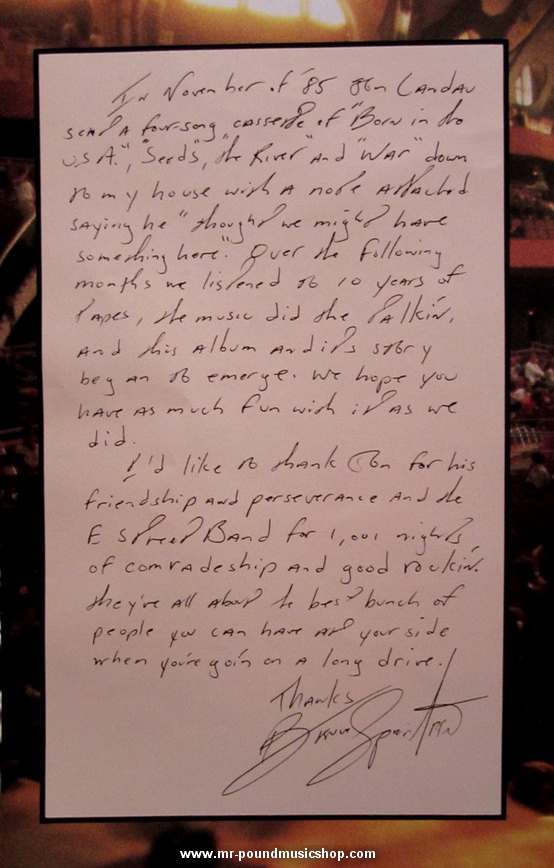 In November of '85 Jon Landau
sent a four-song cassette of "Born in the
U.S.A.", "Seeds", "the River" and "War" down
to my house with a note attached
saying he "thought we might have
something here". Over the following
months we listened to 10 years of
tapes, the music did the talkin',
and this album and it's story
began to emerge. We hope you
have as much fun with it as we
did.
I'd like to thank Jon for his
friendship and perseverance and the
E Street Band for 1,001 nights
of comradeship and good rockin'.
they're all about the best bunch of
people you can have at your side
when you're goin' on a long drive.
Thanks
Bruce Springsteen
www.mr-poundmusicshop.com